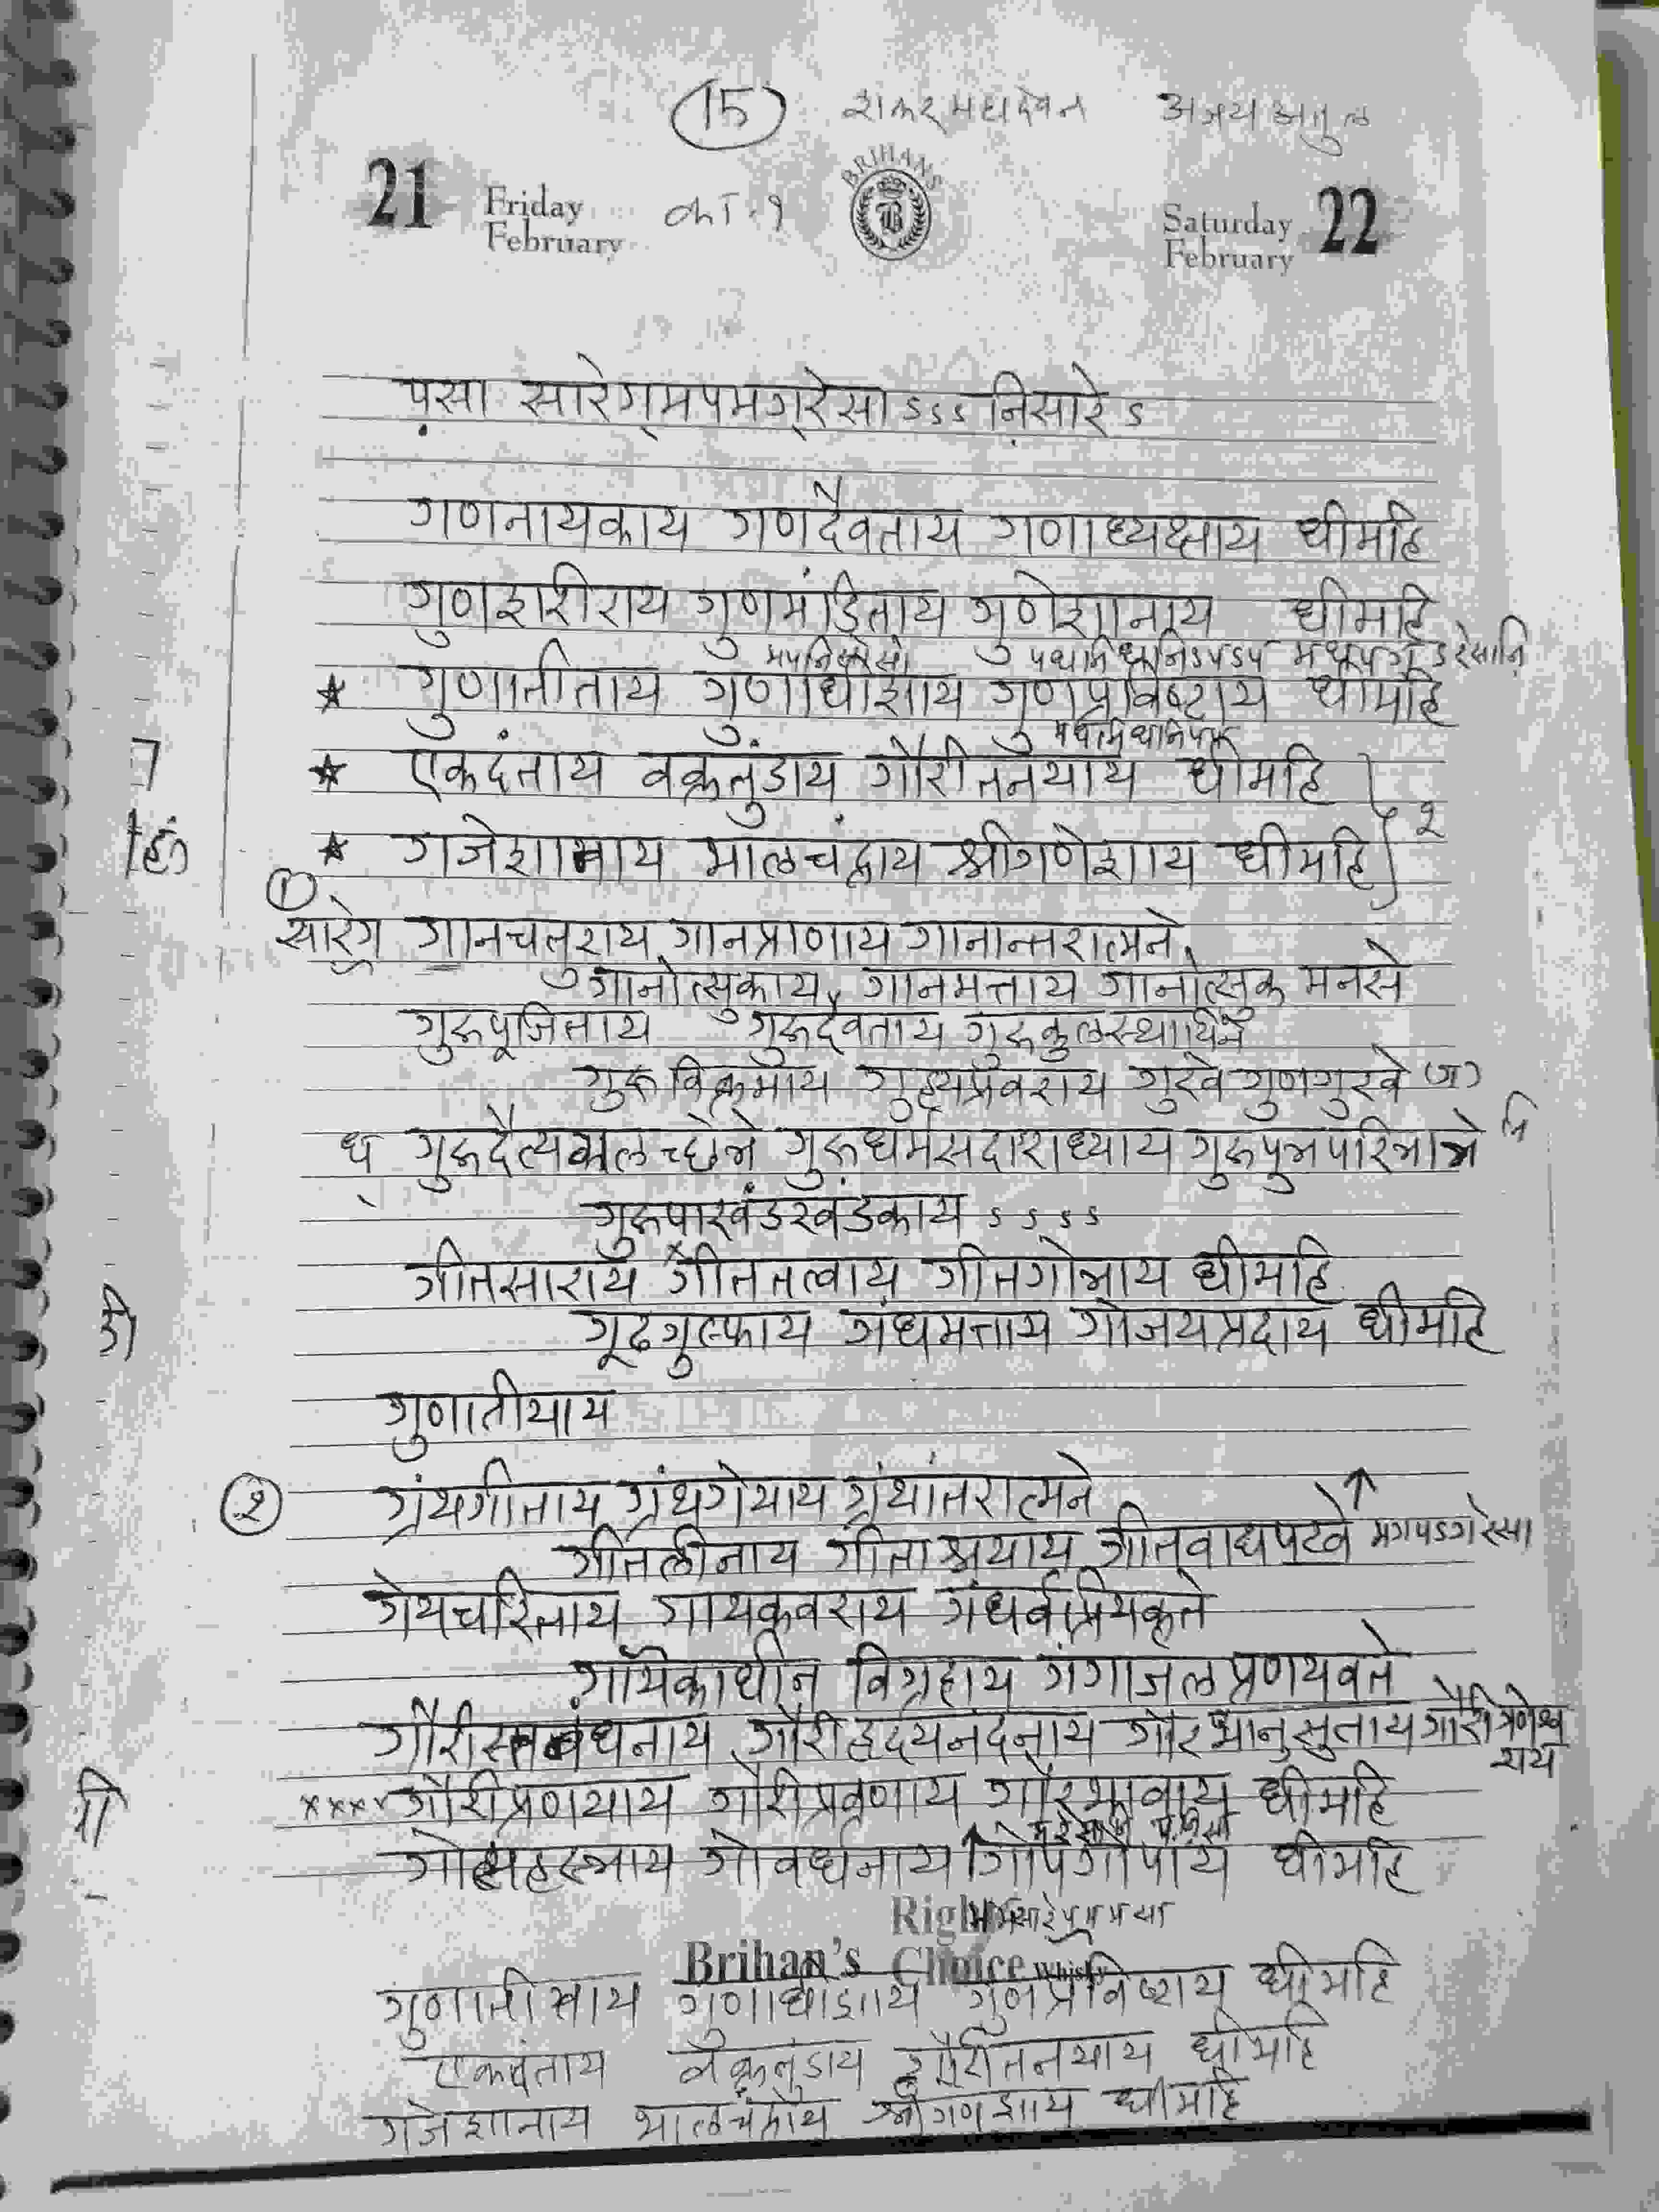 15 शंकर महादेवन अजय अतुल
21 Friday February का.१ BRIHANS B Saturday February 22
प़सा सारेग॒मपमग॒रेसा ऽऽऽ नि़सारे ऽ
गणनायकाय गणदैवताय गणाध्यक्षाय धीमहि
गुणशरीराय गुणमंडिताय गुणेशानाय धीमहि
★ गुणातीताय गुणाधीशाय गुणप्रविष्टाय धीमहि
★ एकदंताय वक्रतुंडाय गौरीतनयाय धीमहि
★ गजेशानाय भालचंद्राय श्रीगणेशाय धीमहि } २
①
सारेग॒ गानचतुराय गानप्राणाय गानान्तरात्मने
गानोत्सुकाय गानमत्ताय गानोत्सुक मनसे
गुरुपूजिताय गुरुदैवताय गुरुकुलस्थायिने
गुरु विक्रमाय गुह्यप्रवराय गुरवे गुणगुरवे
ध॒ गुरुदैत्यकलच्छेत्रे गुरुधर्मसदाराध्याय गुरुपुत्रपरित्रात्रे
गुरुपाखंडखंडकाय ऽ ऽ ऽ ऽ
गीतसाराय गीततत्वाय गीतगोत्राय धीमहि
गूढगुल्फाय गंधमत्ताय गोजयप्रदाय धीमहि
गुणातीयाय
② ग्रंथगीताय ग्रंथगेयाय ग्रंथांतरात्मने
गीतलीनाय गीताश्रयाय गीतवाद्यपटवे मगपडगरेसा
गेयचरिताय गायकवराय गंधर्वप्रियकृते
गायिकाधीन विग्रहाय गंगाजल प्रणयवते
गौरीस्तनंधनाय गौरीहृदयनंदनाय गौरभानुसुताय गौरीगणेश्व
राय
×××× गौरीप्रणयाय गौरीप्रवणाय गौरभावाय धीमहि
गोसहस्त्राय गोवर्धनाय गोपगोपाय धीमहि
Right
Brihan's Choice Whisky
गुणातीताय गुणाधीशाय गुणप्रविष्टाय धीमहि
एकदंताय वक्रतुंडाय गौरीतनयाय धीमहि
गजेशानाय भालचंद्राय श्रीगणेशाय धीमहि